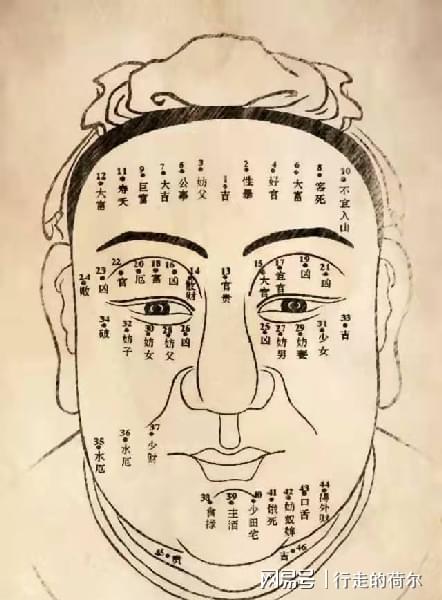 12 大富
11 寿夭
9 巨富
7 大吉
5 公事
3 妨父
1 吉
2 性暴
4 好官
6 大富
8 客死
10 不宜入山
24 敗
23 凶
22 官
20 厄
18 富
16 凶
14 财
13 官贵
15 大官
17 宜官
19 凶
21 凶
34 破
32 妨子
30 妨女
28 妨父
26 凶
25 凶
27 妨男
29 妨妻
31 少女
33 吉
35 水厄
36 水厄
37 少财
38 食禄
39 主酒
40 少田宅
41 饿死
42 妨奴婢
43 口舌
44 外财
吉 46
网易号 | 行走的荷尔